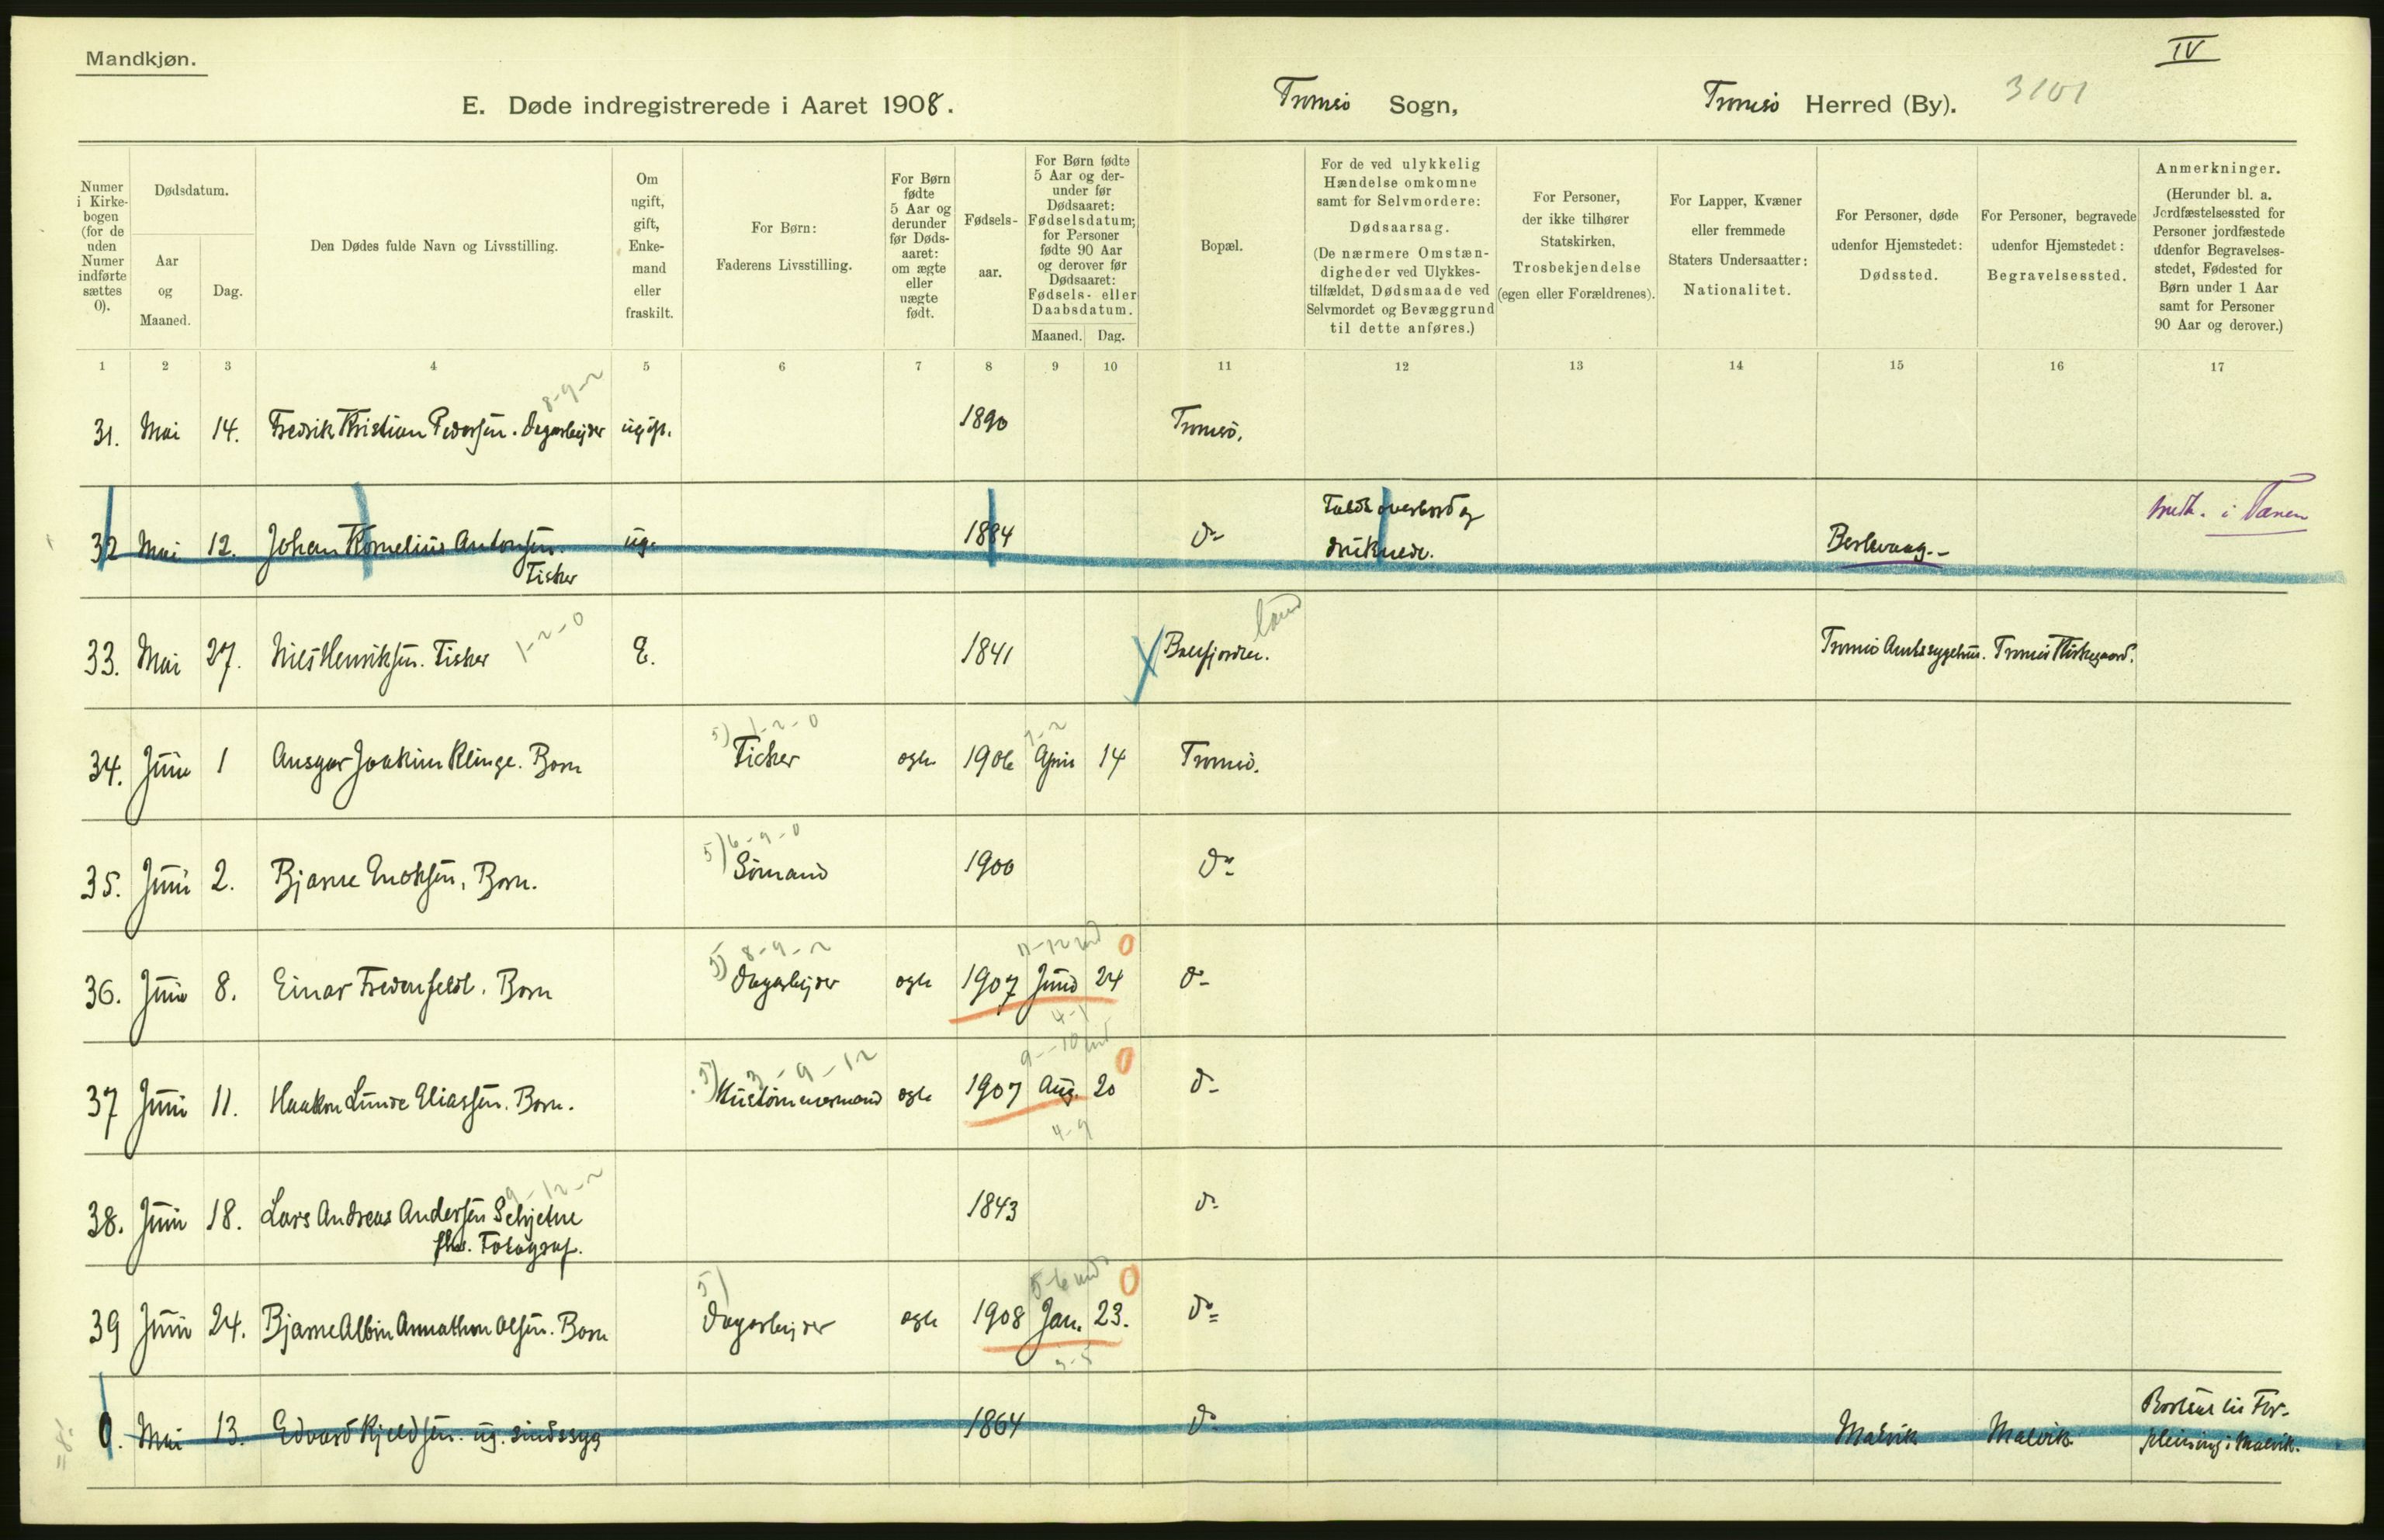 Mandkjøn.
IV
E. Døde indregistrerede i Aaret 1908. Tromsö Sogn, Tromsö Herred (By). 3101
Numer i Kirke-bogen (for de uden Numer indførte sættes 0).
Dødsdatum.
Aar og Maaned.
Dag.
Den Dødes fulde Navn og Livsstilling.
Om ugift, gift, Enke-mand eller fraskilt.
For Børn:
Faderens Livsstilling.
For Børn fødte 5 Aar og derunder før Døds-aaret: om ægte eller uægte født.
Fødsels-aar.
For Børn fødte 5 Aar og der-under før Dødsaaret: Fødselsdatum; for Personer fødte 90 Aar og derover før Dødsaaret: Fødsels- eller Daabsdatum.
Maaned. Dag.
Bopæl.
For de ved ulykkelig Hændelse omkomne samt for Selvmordere:
Dødsaarsag.
(De nærmere Omstæn-digheder ved Ulykkes-tilfældet, Dødsmaade ved Selvmordet og Bevæggrund til dette anføres.)
For Personer, der ikke tilhører Statskirken,
Trosbekjendelse
(egen eller Forældrenes).
For Lapper, Kvæner eller fremmede Staters Undersaatter:
Nationalitet.
For Personer, døde udenfor Hjemstedet:
Dødssted.
For Personer, begravede udenfor Hjemstedet:
Begravelsessted.
Anmerkninger.
(Herunder bl. a. Jordfæstelsessted for Personer jordfæstede udenfor Begravelses-stedet, Fødested for Børn under 1 Aar samt for Personer 90 Aar og derover.)
1 2 3 4 5 6 7 8 9 10 11 12 13 14 15 16 17
8-9-2
31. Mai 14. Fredrik Kristian Pedersen. Dagarbejder ugift. 1890 Tromsö.
32 Mai 12. Johan Kornelius Antonsen. ug. 1884 do Faldt overbord og
Fisker druknede. Berlevaag.- i Tanen
33. Mai 27. Nils Henriksen. Fisker 1-2-0 E. 1841 Balsfjorden. land Tromsö Amtssygehus. Tromsö Kirkegaard.
5) 1-2-0
34. Juni 1 Ansgar Joakim Klinge. Barn Fisker egte 1906 April 14 Tromsö.
5) 6-9-0
35. Juni 2. Bjarne Enoksen, Barn. Sömand 1900 do
5) 8-9-2 11-12 md 0
36. Juni 8. Einar Fredenfeldt. Barn Dagarbejder egte 1907 Juni 24 do
4-1
5) 3-9-12 9-10 md 0
37 Juni 11. Haakon Lunde Eliassen. Barn. Hustömmermand egte 1907 Aug. 20 do
4-9
9-12-2
38. Juni 18. Lars Andreas Andersen Schjetne 1843 do
fhv. Fotograf.
5) 5-6 md 0
39 Juni 24. Bjarne Albin Annathon Olsen. Barn Dagarbejder egte 1908 Jan. 23. do
3-5
0. Mai 13. Edvard Kjeldsen. ug. sindssyg 1864 do Malvik Malvik Bortsat til For-
pleining i Malvik.